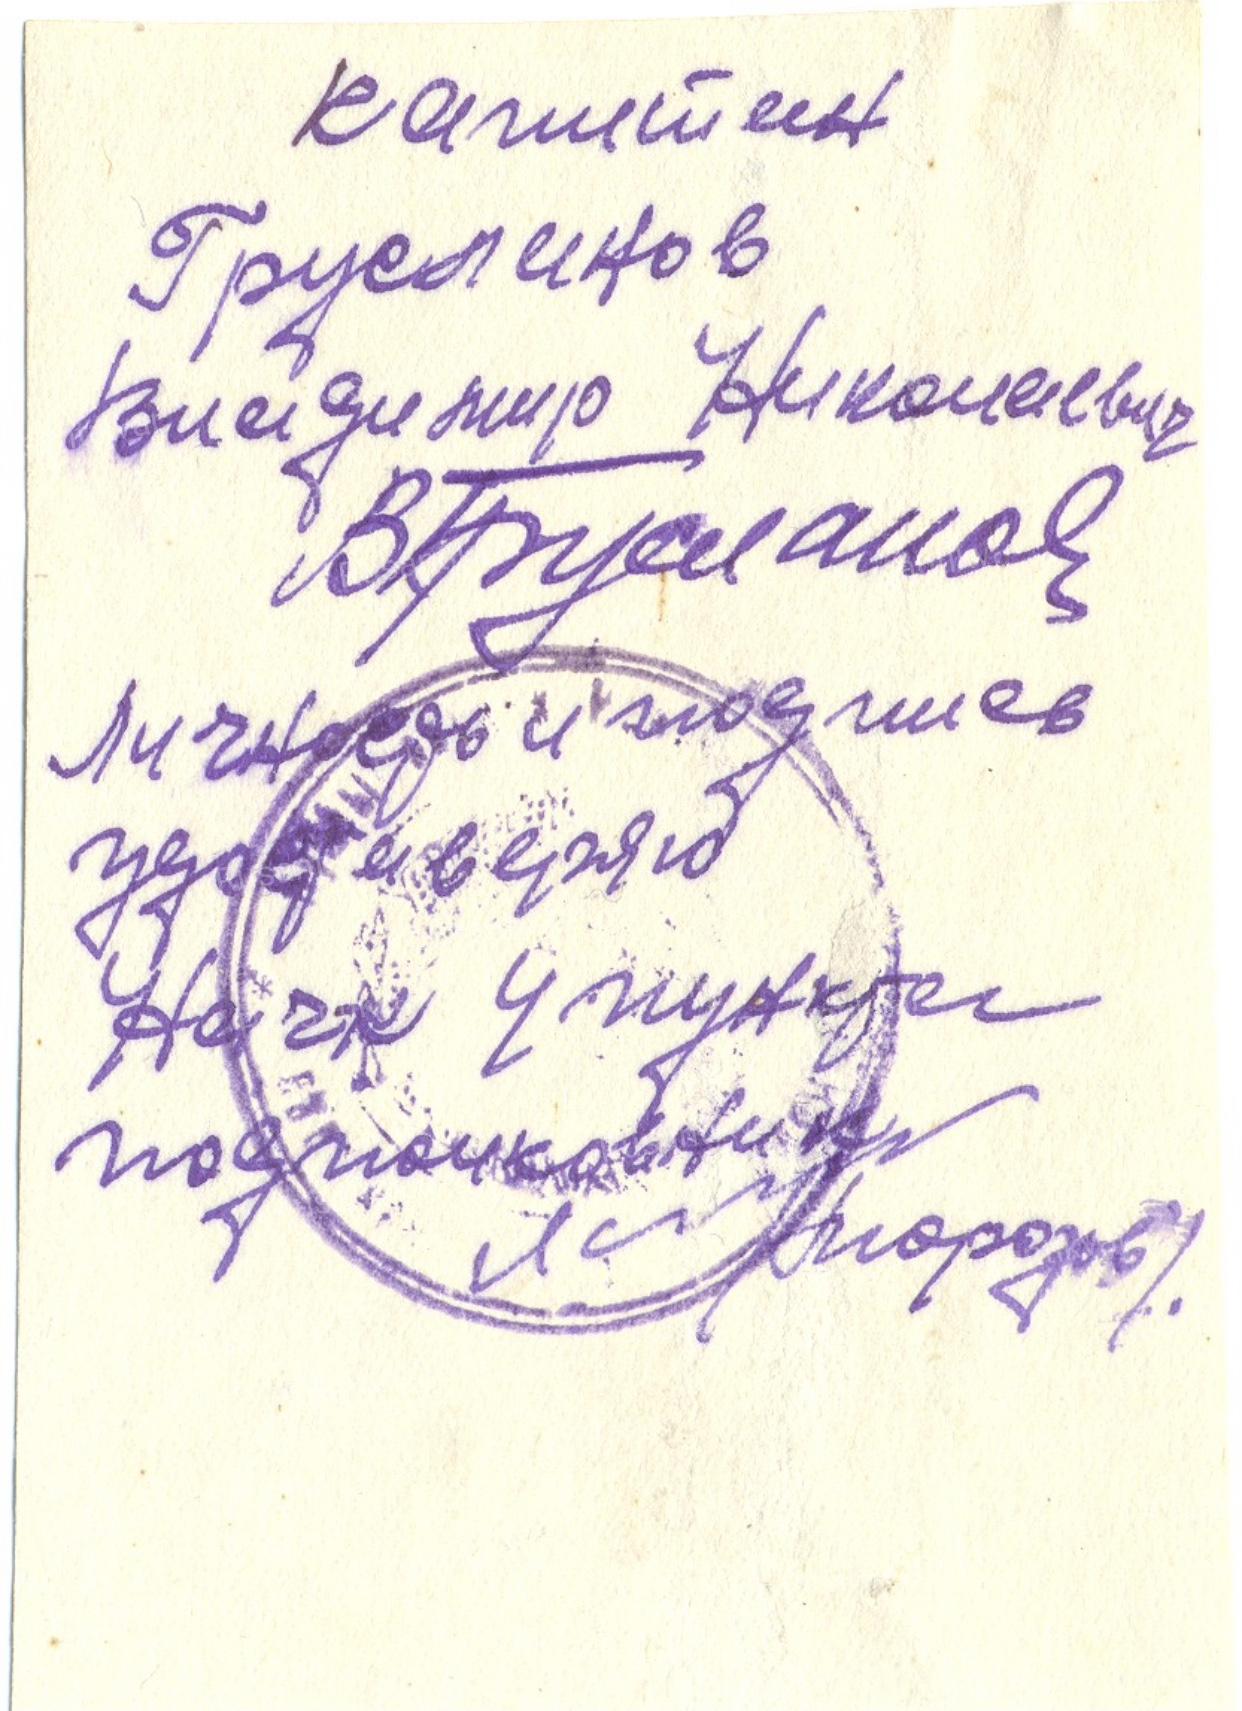 капитан
Трусланов
Владимир Николаевич
ВТрусланов
Личность и подпись
удостоверяю
Начк 4 пункта
подполковник
/Морозов/.